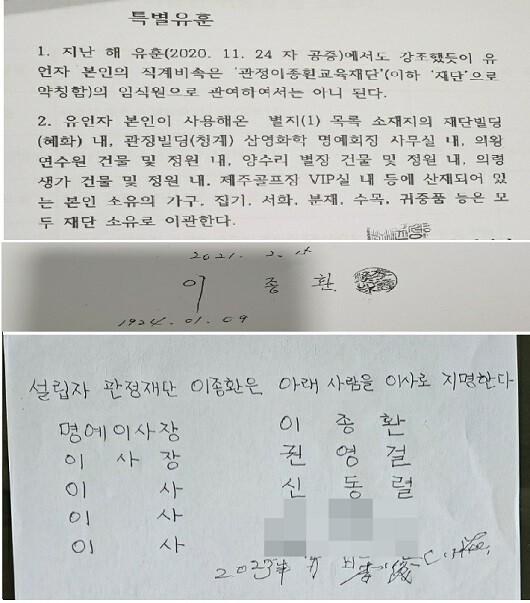 특별유훈
1. 지난 해 유훈(2020. 11. 24 자 공증)에서도 강조했듯이 유
언자 본인의 직계비속은 '관정이종환교육재단'(이하 '재단'으로
약칭함)의 임직원으로 관여하여서는 아니 된다.
2. 유언자 본인이 사용해온 별지(1) 목록 소재지의 재단빌딩
(혜화) 내, 관정빌딩(청계) 삼영화학 명예회장 사무실 내, 의왕
연수원 건물 및 정원 내, 양수리 별장 건물 및 정원 내, 의령
생가 건물 및 정원 내, 제주골프장 VIP실 내 등에 산재되어 있
는 본인 소유의 가구, 집기, 서화, 분재, 수목, 귀중품 등은 모
두 재단 소유로 이관한다.
2021. 2. 15
이 종 환
1924. 01. 09
설립자 관정재단 이종환은 아래 사람을 이사로 지명한다
명예이사장 이 종 환
이 사 장 권 영 걸
이 사 신 동 렬
이 사
이 사
2023年